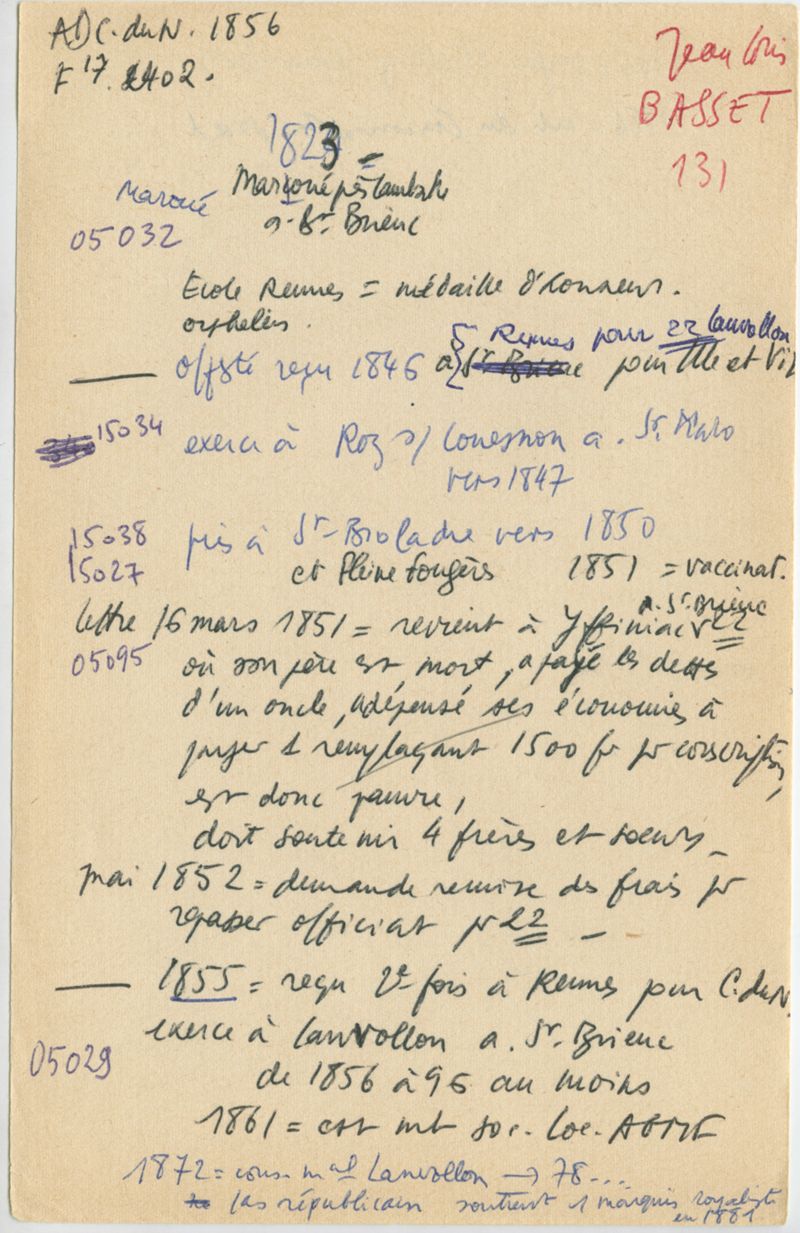 AD C. du N. 1856
F 17. 2402.
Jean Louis
BASSET
131
1823 =
Maroué
Maroué près Lamballe
05032
a. St. Brieuc
Ecole Rennes = médaille d'honneur.
orphelin.
Rennes pour 22 Lanvollon
offsté reçu 1846 à St Brieuc pour Ille et Vil
15034 exerce à Roz s/ Couesnon a. St. Malo
vers 1847
15038 puis à St-Broladre vers 1850
15027 et Pleine Fougères 1851 = vaccinat.
a. St. Brieuc
lettre 16 mars 1851 = revient à Yffiniac 22
05095 où son père est mort, a payé les dettes
d'un oncle, a dépensé ses économies à
payer 1 remplaçant 1500 fr pr conscription,
est donc pauvre,
doit soutenir 4 frères et soeurs_
mai 1852 = demande remise des frais pr
repasser officiat pr 22 _
1855 = reçu 2e fois à Rennes pour C. du N.
exerce à Lanvollon a. St. Brieuc
05029
de 1856 à 96 au moins
1861 = est mb soc. loc. AGMF
1872 = cons. mal Lanvollon → 78...
pas républicain soutient 1 marquis royaliste
en 1881.